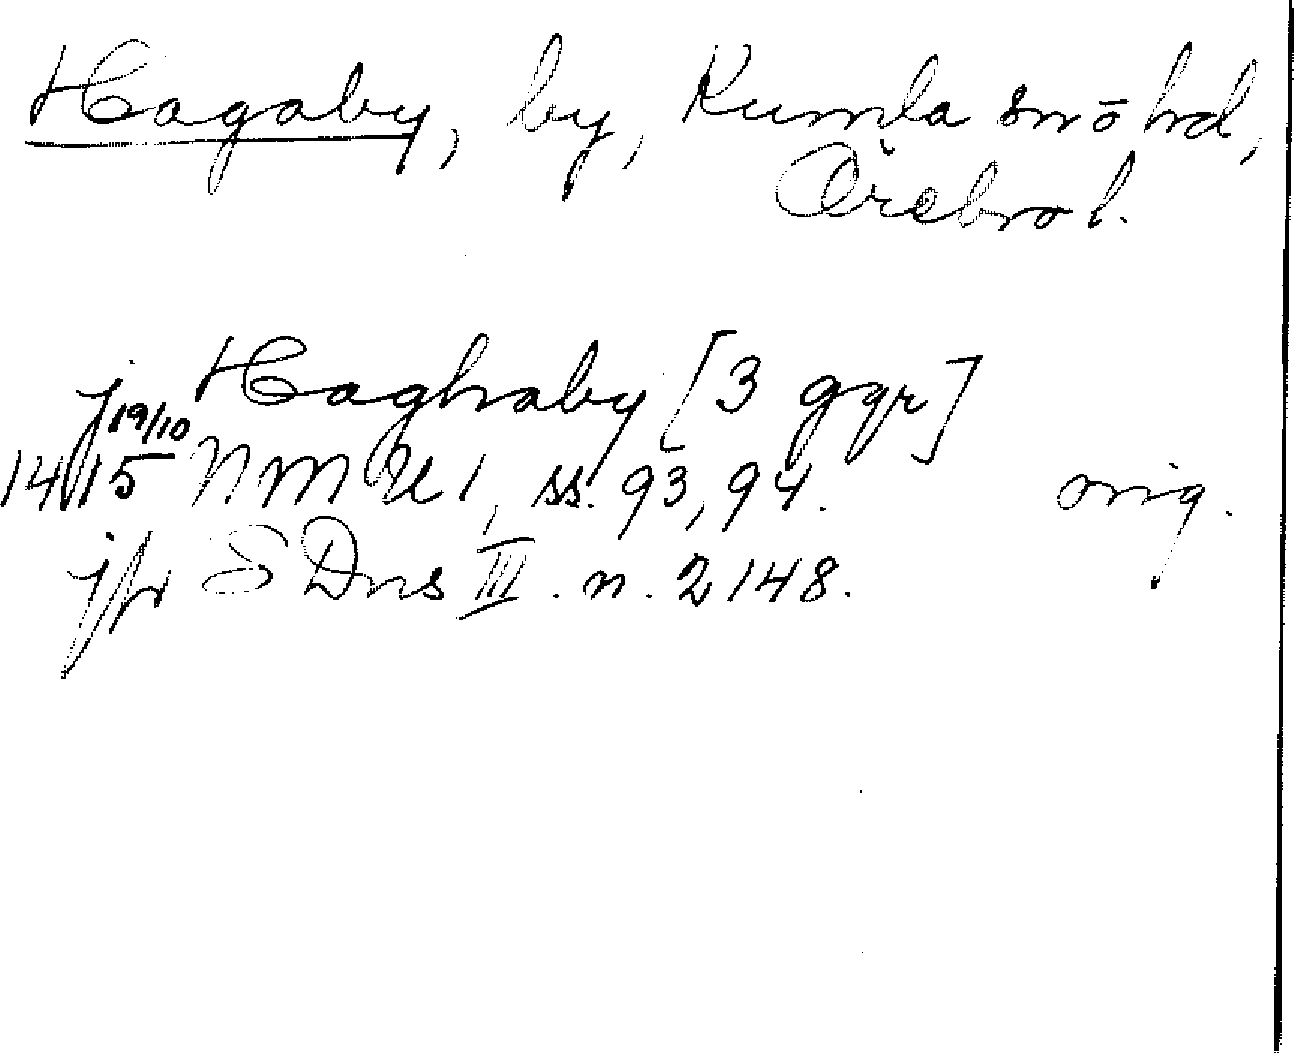 Hagaby, by, Kumla sn o hd,
Örebro l.
j Haghaby [3 ggr]
19/10
1415 NMU 1, ss. 93, 94. orig.
jfr SDns III. n. 2148.